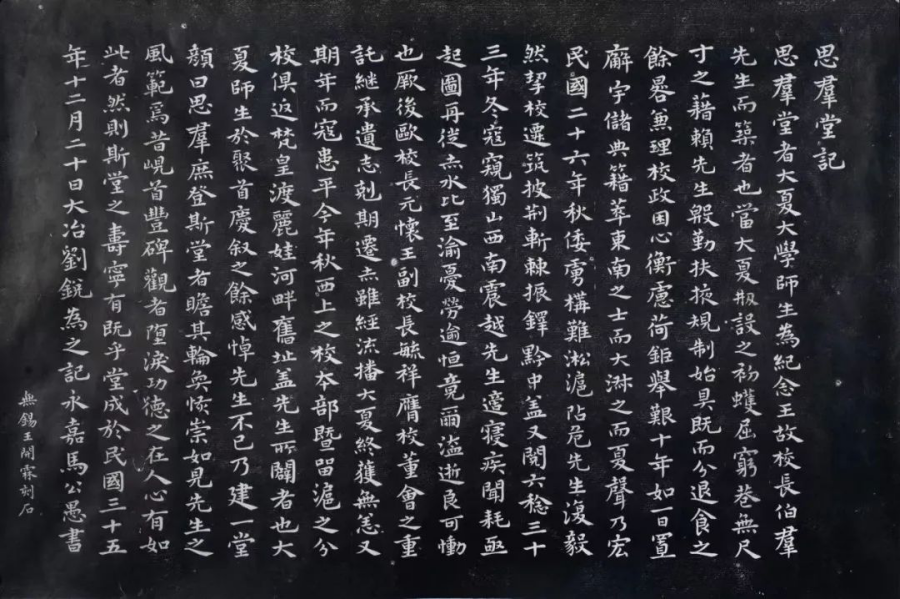 思羣堂記
思羣堂者大夏大學師生為紀念王故校長伯羣
先生而築者也當大夏刱設之初蠖屈窮巷無尺
寸之藉賴先生殷勤扶掖規制始具既而分退食之
餘晷兼理校政困心衡慮荷鉅舉艱十年如一日置
廨宇儲典籍萃東南之士而大淋之而夏聲乃宏
民國二十六年秋倭雺構難淞滬阽危先生湲毅
然挈校遷筑披荆斬棘振鐸黔中盖又閱六稔三十
三年冬寇窺獨山西南震越先生適寢疾聞耗亟
起圖再徙赤水比至渝憂勞逾恒竟爾溘逝良可慟
也厥後歐校長元懷王副校長毓祥膺校董會之重
託継承遺志剋期遷赤雖經流播大夏終獲無恙又
期年而寇患平今年秋西上之校本部暨畱滬之分
校俱返梵皇渡麗娃河畔舊址盖先生所闢者也大
夏師生於聚首慶叙之餘感悼先生不已乃建一堂
顔曰思羣庶登斯堂者瞻其輪奐恢崇如見先生之
風範焉昔峴首豐碑觀者堕淚功德之在人心有如
此者然則斯堂之壽寧有既乎堂成於民國三十五
年十二月二十日大冶劉銳為之記永嘉馬公愚書
無錫王開霖刻石